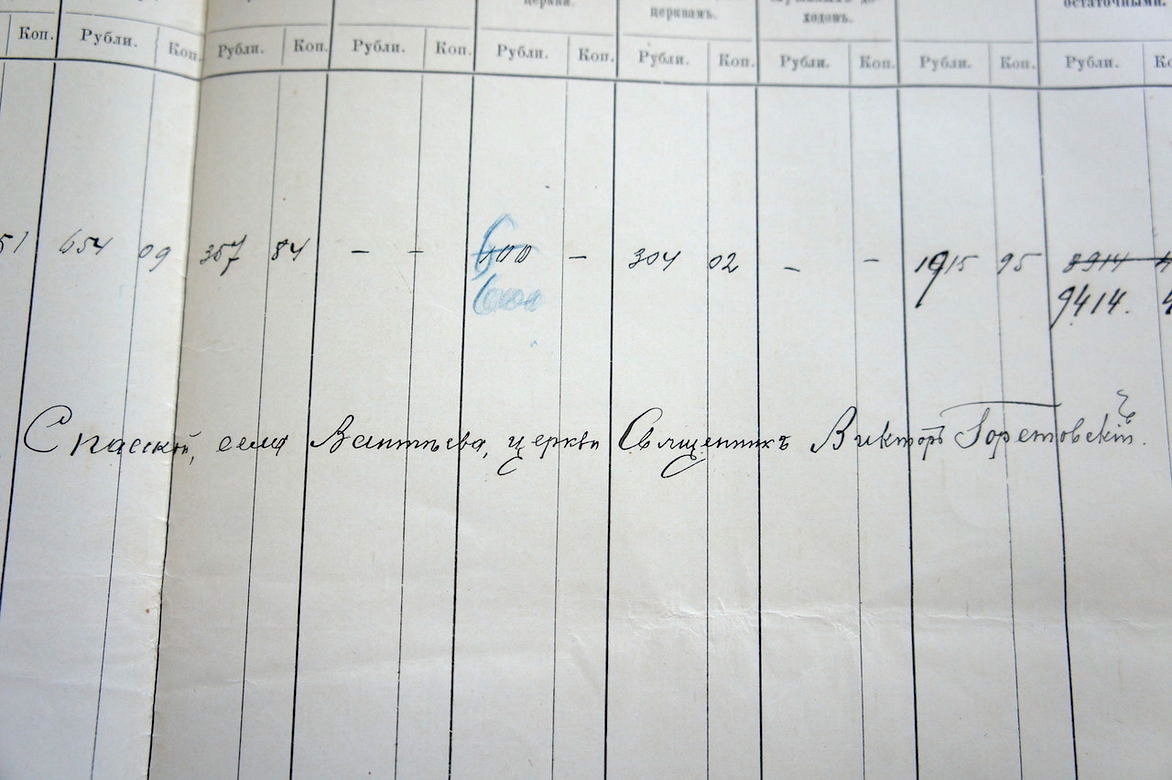 церкви. церквамъ. ходовъ. остаточными.
Коп. Рубли. Коп. Рубли. Коп. Рубли. Коп. Рубли. Коп. Рубли. Коп. Рубли. Коп. Рубли. Коп. Рубли.
51 654 09 367 84 — — 600 — 304 02 — — 1915 95 8914
600 9414.
Спасской, села церкви Священникъ Викторъ Горетовскій.